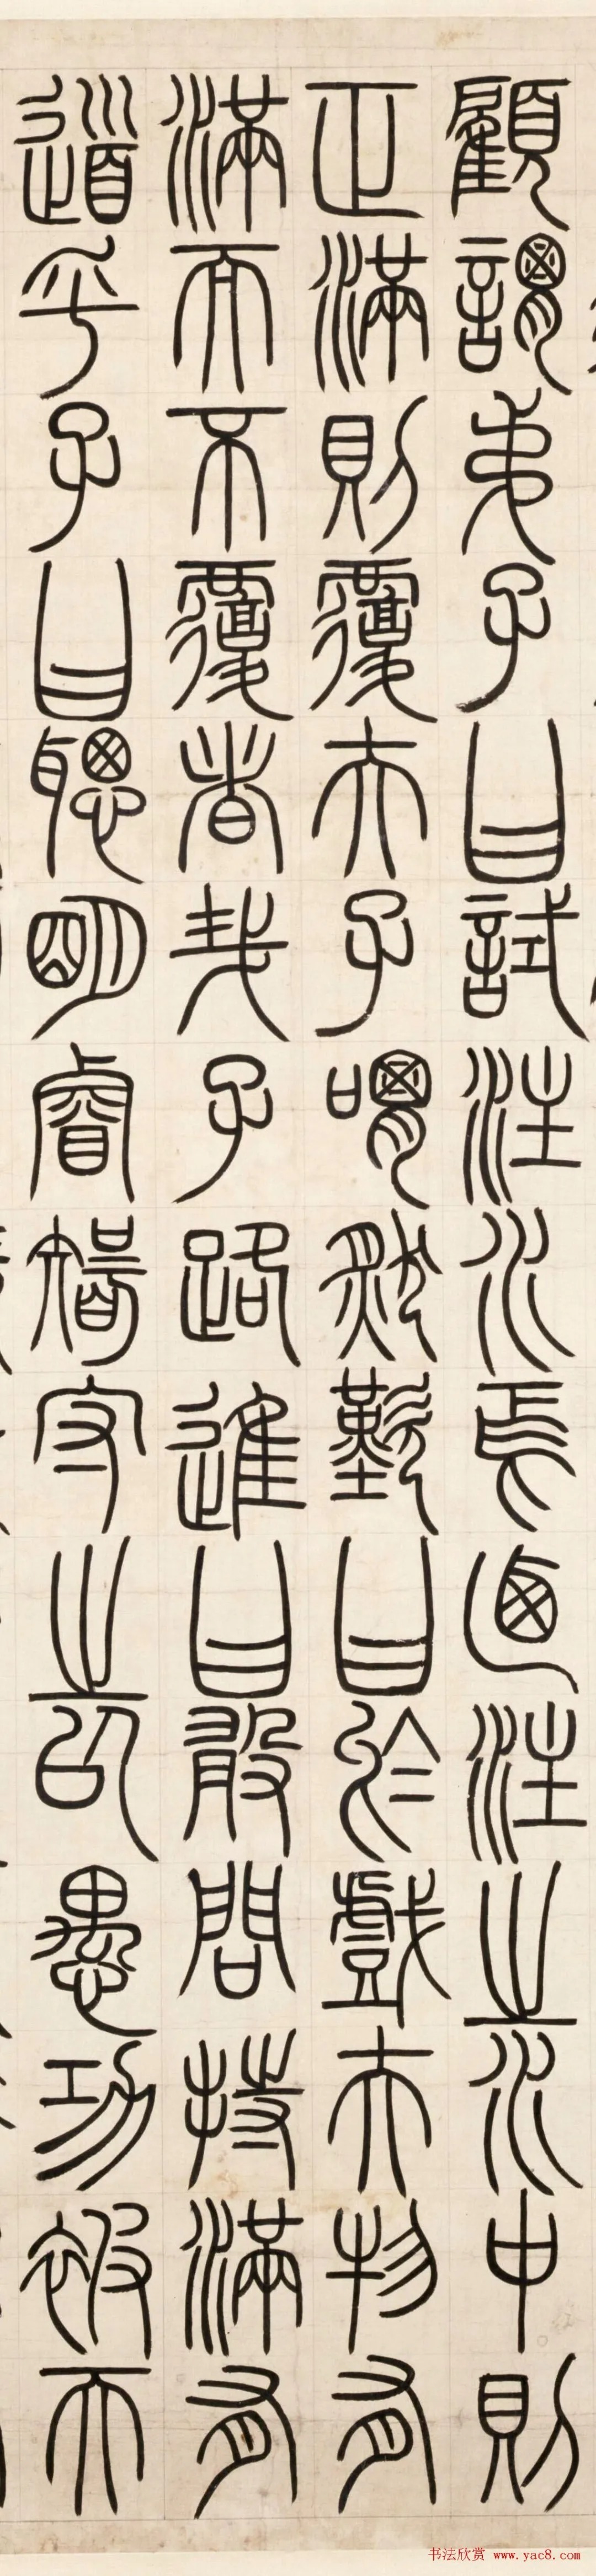 顧謂弟子曰試注水焉廼注之水中則
正滿則覆夫子喟然歎曰於戲夫物有
滿而不覆者哉子路進曰敢問持滿有
道乎子曰聰明睿智守之以愚功被天
书法欣赏 www.yac8.com